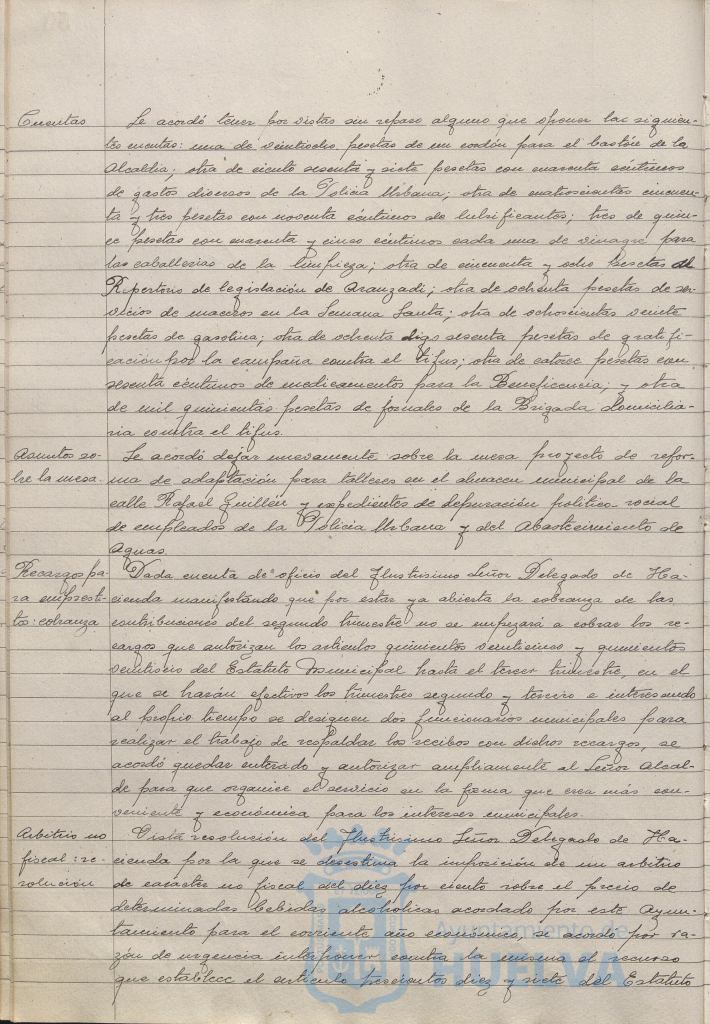 Cuentas
Se acordó tener por vistas sin reparo alguno que oponer las siguien-
tes cuentas: una de veintiocho pesetas de un cordón para el bastón de la
Alcaldía; otra de ciento sesenta y siete pesetas con cuarenta céntimos
de gastos diversos de la Policia Urbana; otra de cuatrocientos cincuen-
ta y tres pesetas con noventa céntimos de lubrificantes; tres de quin-
ce pesetas con cuarenta y cinco céntimos cada una de vinagre para
las caballerias de la limpieza; otra de cincuenta y ocho pesetas al
Repertorio de legislación de Aranzadi; otra de ochenta pesetas de ser-
vicios de maceros en la Semana Santa; otra de ochocientas veinte
pesetas de gasolina; otra de ochenta digo sesenta pesetas de gratifi-
cación por la campaña contra el tifus; otra de catorce pesetas con
sesenta céntimos de medicamentos para la Beneficencia; y otra
de mil quinientas pesetas de jornales de la Brigada domicilia-
ria contra el tifus.
Asuntos so-
bre la mesa.
Se acordó dejar nuevamente sobre la mesa proyecto de refor-
ma de adaptación para talleres en el almacen municipal de la
calle Rafael Guillén y expedientes de depuración politico-social
de empleados de la Policia Urbana y del Abastecimiento de
Aguas.
Recargos pa-
ra emprésti-
tos: cobranza
Dada cuenta de oficio del Ilustrisimo Señor Delegado de Ha-
cienda manifestando que por estar ya abierta la cobranza de las
contribuciones del segundo trimestre no se empezará a cobrar los re-
cargos que autorizan los articulos quinientos veinticinco y quinientos
veintiseis del Estatuto Municipal hasta el tercer trimestre, en el
que se harán efectivos los trimestres segundo y tercero e interesando
al propio tiempo se designen dos funcionarios municipales para
realizar el trabajo de respaldar los recibos con dichos recargos, se
acordó quedar enterado y autorizar ampliamente al Señor Alcal-
de para que organice el servicio en la forma que crea más con-
veniente y económica para los intereses municipales.
Arbitrio no
fiscal: re-
solución
Vista resolución del Ilustrisimo Señor Delegado de Ha-
cienda por la que se desestima la imposición de un arbitrio
de carácter no fiscal del diez por ciento sobre el precio de
determinadas bebidas alcoholicas acordado por este Ayun-
tamiento para el corriente año económico, se acordó por ra-
zón de urgencia interponer contra la misma el recurso
que establece el artículo trescientos diez y siete del Estatuto
Ayuntamiento de
HUELVA